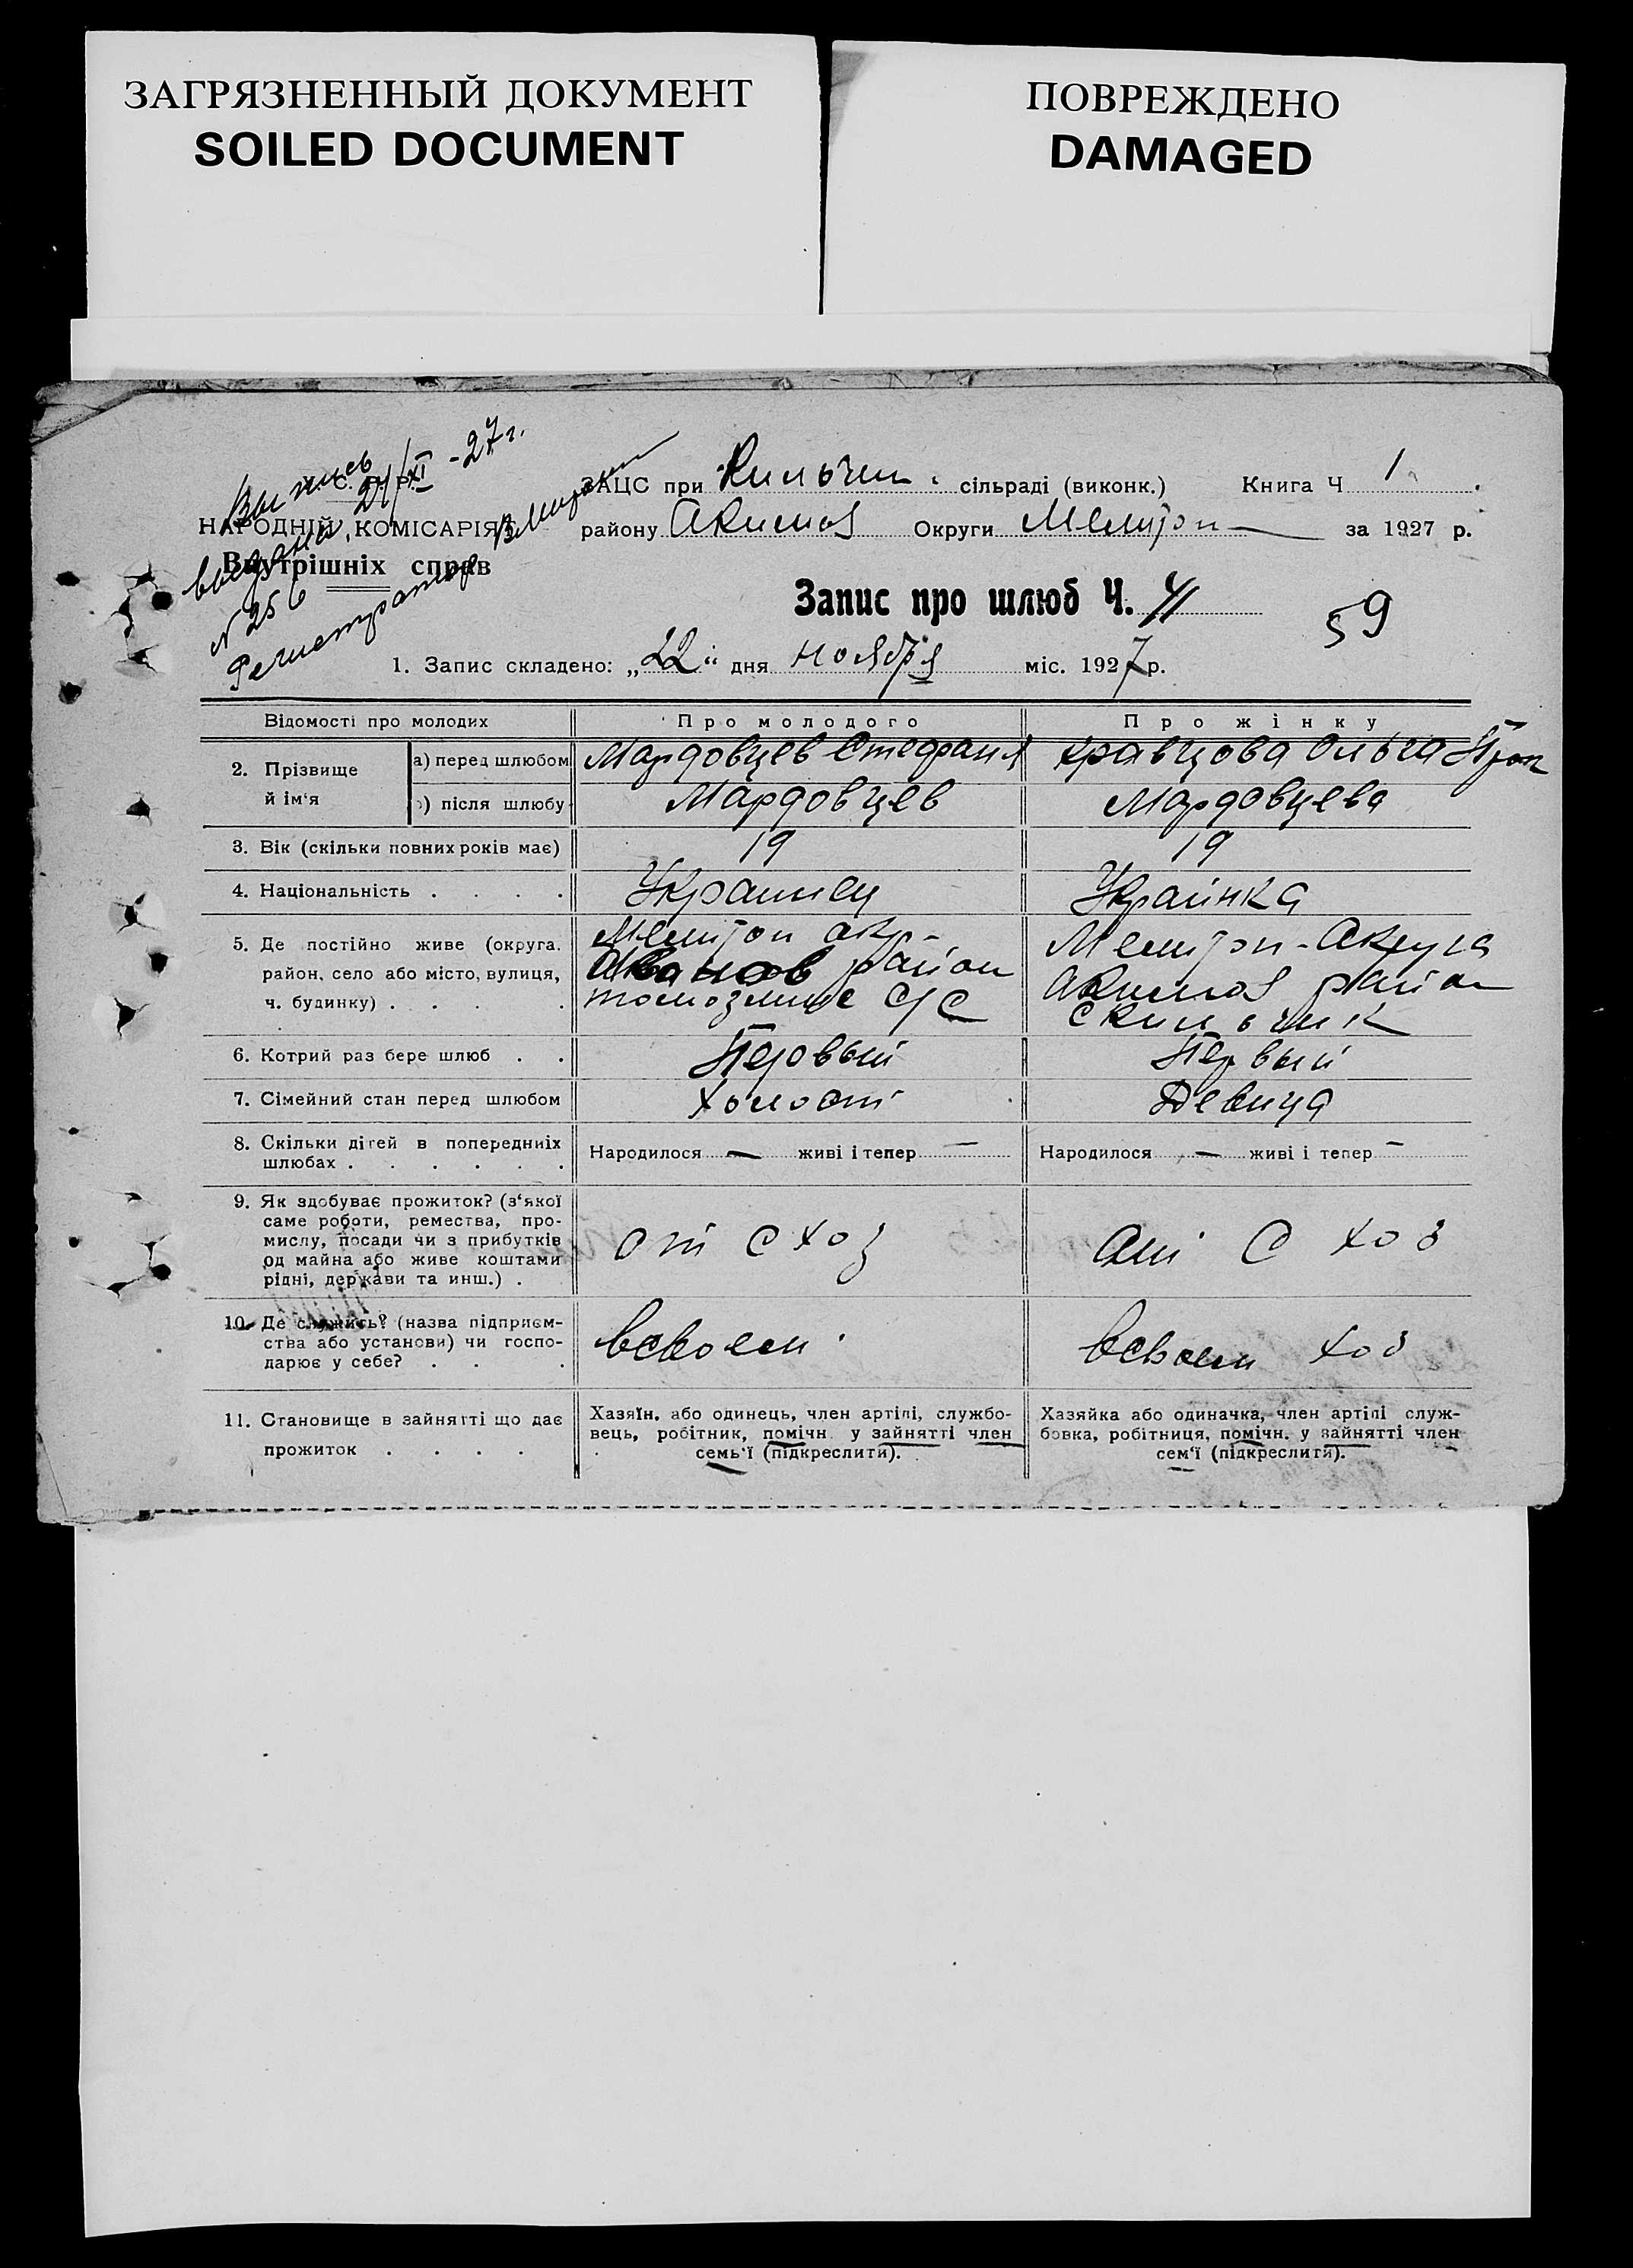 ЗАГРЯЗНЕННЫЙ ДОКУМЕНТ
SOILED DOCUMENT
ПОВРЕЖДЕНО
DAMAGED
Выпись
выдана 24/XI -27г.
N 256
Регистратор
У. С. Р. Р.
НАРОДНІЙ КОМІСАРІЯТ
Внутрішніх справ
ЗАЦС при Кильчик. сільраді (виконк.) Книга Ч 1
району Акимов Округи Мелитоп за 1927 р.
Запис про шлюб Ч. 41
59
1. Запис складено: „22“ дня ноября міс. 1927 р.
Відомості про молодих Про молодого Про жінку
2. Прізвище й ім‘я
а) перед шлюбом Мардовцев Стефан Кравцова Ольга
б) після шлюбу Мардовцев Мардовцева
3. Вік (скільки повних років має) 19 19
4. Національність . . . . Украинец Украинка
5. Де постійно живе (округа, район, село або місто, вулиця, ч. будинку) . . . .
Мелитоп окр-
район
С/С
Мелитоп-Округа
Акимов район
6. Котрий раз бере шлюб . . Первый Первый
7. Сімейний стан перед шлюбом Холост Девица
8. Скільки дітей в попередніх шлюбах . . . . . . Народилося — живі і тепер — Народилося — живі і тепер —
9. Як здобуває прожиток? (з‘якої саме роботи, ремества, промислу, посади чи з прибутків од майна або живе коштами рідні, держави та инш.) . от С хоз от С хоз
10. Де служить? (назва підприємства або установи) чи господарює у себе? . . . всвоем всвоем хоз
11. Становище в зайнятті що дає прожиток . . . .
Хазяїн, або одинець, член артілі, службовець, робітник, помічн. у зайнятті член семь‘ї (підкреслити).
Хазяйка або одиначка, член артілі службовка, робітниця, помічн. у зайнятті член сем‘ї (підкреслити).